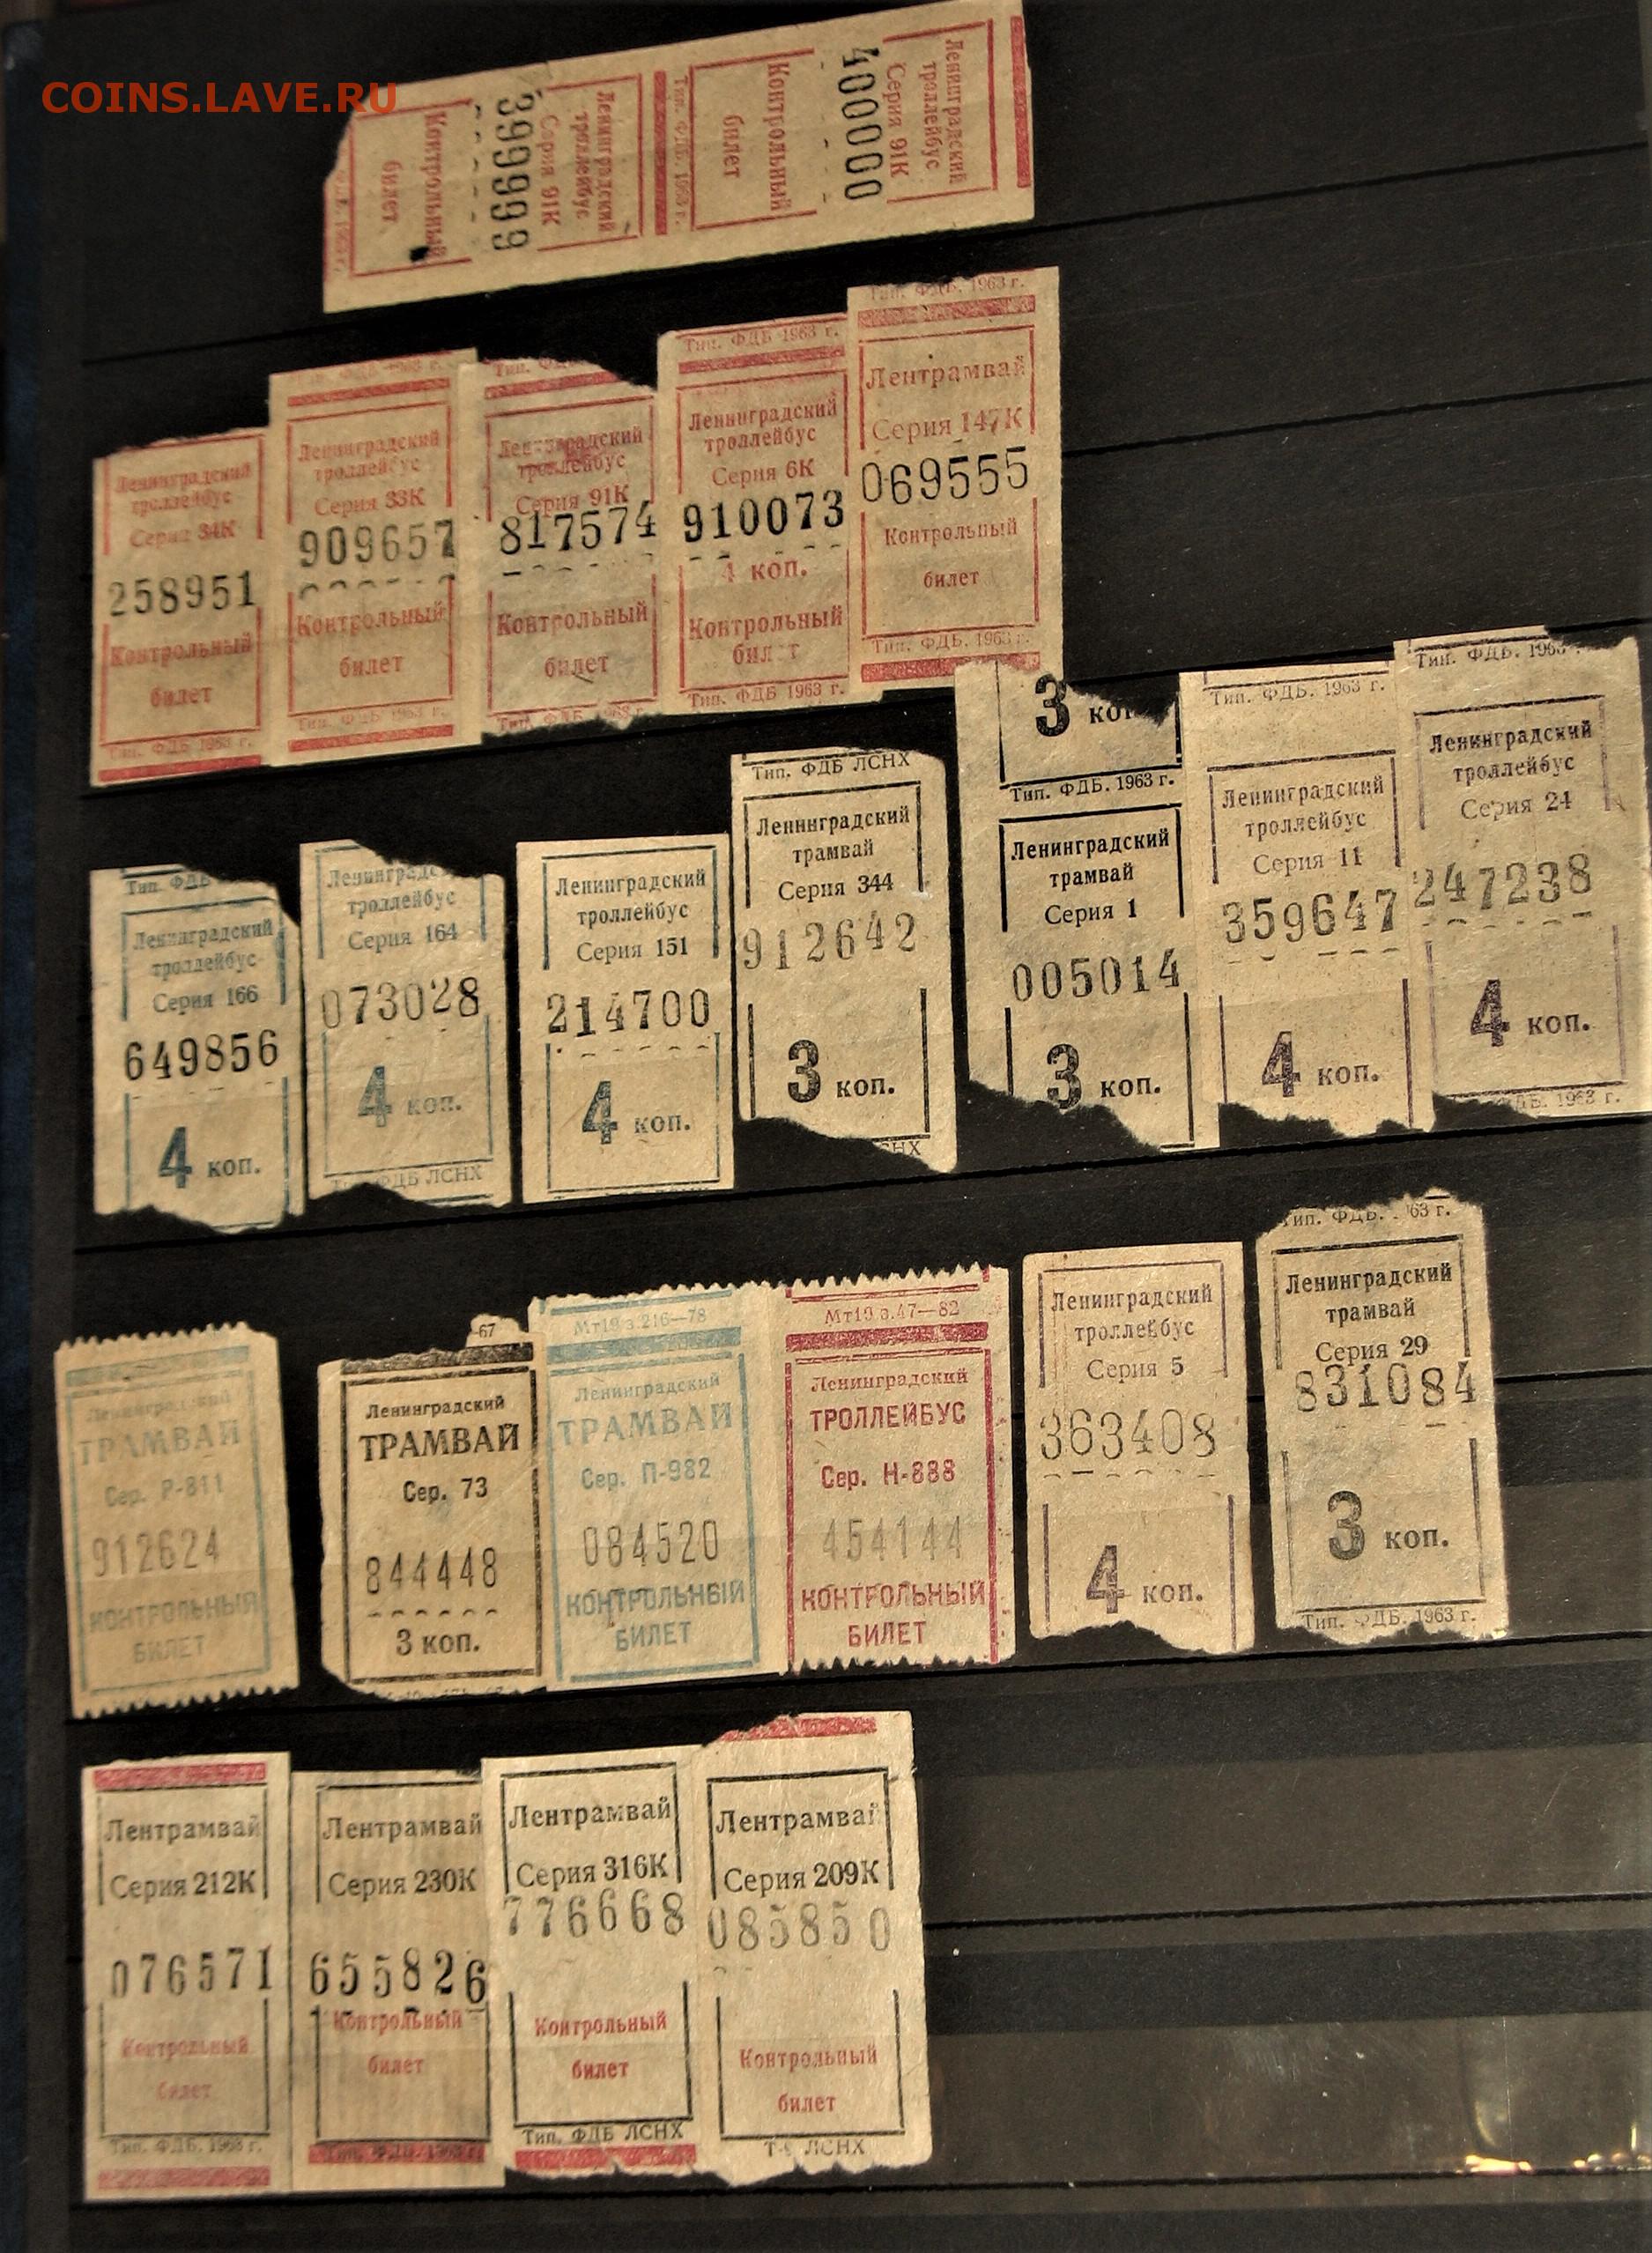 COINS.LAVE.RU
Ленинградский
троллейбус
Серия 91К
400000
Контрольный
билет
Тип. ФДБ. 1963 г.
Ленинградский
троллейбус
Серия 91К
399999
Контрольный
билет
1963 г.
Ленинградский
троллейбус
Серия 34К
258951
Контрольный
билет
Тип. ФДБ 1963 г.
Тип. ФДБ 1963 г.
Ленинградский
троллейбус
Серия 33К
909657
Контрольный
билет
Тип. ФДБ 1963 г.
Ленинградский
троллейбус
Серия 91К
817574
Контрольный
билет
Тип. ФДБ 1963 г.
Тип. ФДБ 1963 г.
Ленинградский
троллейбус
Серия 6К
910073
4 коп.
Контрольный
билет
Тип. ФДБ 1963 г.
Тип. ФДБ. 1963 г.
Лентрамвай
Серия 147К
069555
Контрольный
билет
Тип. ФДБ. 1963 г.
Тип. ФДБ
Ленинградский
троллейбус
Серия 166
649856
4 коп.
Ленинградс
троллейбус
Серия 164
073028
4 коп.
Тип. ФДБ ЛСНХ
Ленинградский
троллейбус
Серия 151
214700
4 коп.
Тип. ФДБ ЛСНХ
Ленинградский
трамвай
Серия 344
912642
3 коп.
СНХ
3 коп.
Тип. ФДБ. 1963 г.
Ленинградский
трамвай
Серия 1
005014
3 коп.
Тип. ФДБ. 1963 г.
Ленинградский
троллейбус
Серия 11
359647
4 коп.
Тип. ФДБ. 1963 г.
Ленинградский
троллейбус
Серия 24
247238
4 коп.
ДБ. 1963 г.
Ленинградский
ТРАМВАЙ
Сер. Р-811
912624
КОНТРОЛЬНЫЙ
БИЛЕТ
-67
Ленинградский
ТРАМВАЙ
Сер. 73
844448
3 коп.
Мт19 з.216—78
Ленинградский
ТРАМВАЙ
Сер. П-982
084520
КОНТРОЛЬНЫЙ
БИЛЕТ
Мт19 з.47—82
Ленинградский
ТРОЛЛЕЙБУС
Сер. Н-888
454144
КОНТРОЛЬНЫЙ
БИЛЕТ
Ленинградский
троллейбус
Серия 5
363408
4 коп.
Тип. ФДБ. 63 г.
Ленинградский
трамвай
Серия 29
831084
3 коп.
Тип. ФДБ. 1963 г.
Лентрамвай
Серия 212К
076571
Контрольный
билет
Тип. ФДБ. 1963 г.
Лентрамвай
Серия 230К
655826
Контрольный
билет
Тип. ФДБ. 1963 г.
Лентрамвай
Серия 316К
776668
Контрольный
билет
Тип. ФДБ ЛСНХ
Лентрамвай
Серия 209К
085850
Контрольный
билет
ЛСНХ